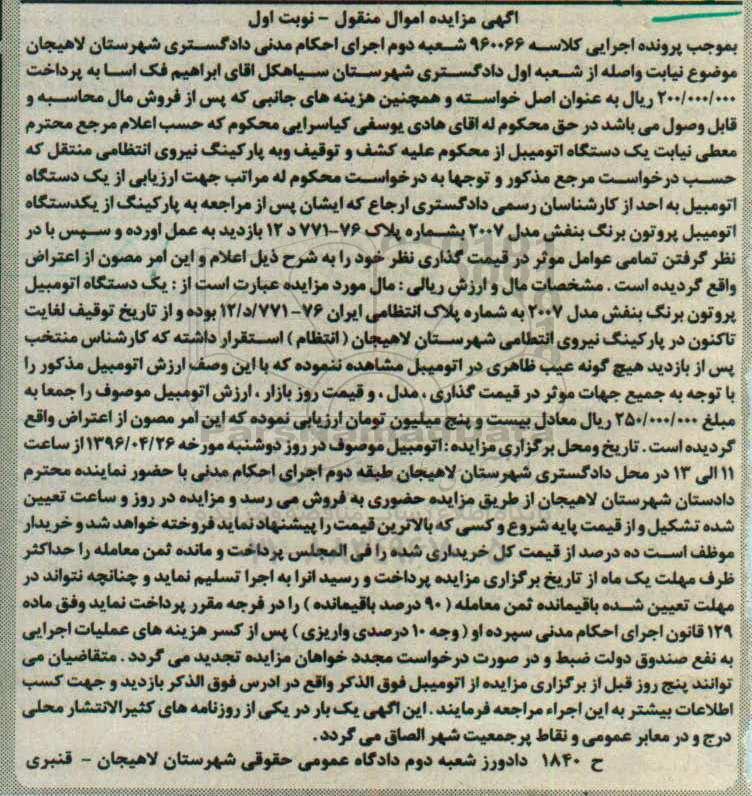 آگهی مزایده اموال منقول - نوبت اول
بموجب پرونده اجرایی کلاسه ۹۶۰۰۶۶ شعبه دوم اجرای احکام مدنی دادگستری شهرستان لاهیجان
موضوع نیابت واصله از شعبه اول دادگستری شهرستان سیاهکل اقای ابراهیم فک اسا به پرداخت
۲۰۰/۰۰۰/۰۰۰ ریال به عنوان اصل خواسته و همچنین هزینه های جانبی که پس از فروش مال محاسبه و
قابل وصول می باشد در حق محکوم له اقای هادی یوسفی کیاسرایی محکوم که حسب اعلام مرجع محترم
معطی نیابت یک دستگاه اتومبیل از محکوم علیه کشف و توقیف وبه پارکینگ نیروی انتظامی منتقل که
حسب درخواست مرجع مذکور و توجها به درخواست محکوم له مراتب جهت ارزیابی از یک دستگاه
اتومبیل به احد از کارشناسان رسمی دادگستری ارجاع که ایشان پس از مراجعه به پارکینگ از یکدستگاه
اتومبیل پروتون برنگ بنفش مدل ۲۰۰۷ بشماره پلاک ۷۶-۷۷۱ د ۱۲ بازدید به عمل اورده و سپس با در
نظر گرفتن تمامی عوامل موثر در قیمت گذاری نظر خود را به شرح ذیل اعلام و این امر مصون از اعتراض
واقع گردیده است . مشخصات مال و ارزش ریالی : مال مورد مزایده عبارت است از : یک دستگاه اتومبیل
پروتون برنگ بنفش مدل ۲۰۰۷ به شماره پلاک انتظامی ایران ۷۶- ۷۷۱/د/۱۲ بوده و از تاریخ توقیف لغایت
تاکنون در پارکینگ نیروی انتظامی شهرستان لاهیجان ( انتظام ) استقرار داشته که کارشناس منتخب
پس از بازدید هیچ گونه عیب ظاهری در اتومبیل مشاهده ننموده که با این وصف ارزش اتومبیل مذکور را
با توجه به جمیع جهات موثر در قیمت گذاری ، مدل ، و قیمت روز بازار ، ارزش اتومبیل موصوف را جمعا به
مبلغ ۲۵۰/۰۰۰/۰۰۰ ریال معادل بیست و پنج میلیون تومان ارزیابی نموده که این امر مصون از اعتراض واقع
گردیده است . تاریخ ومحل برگزاری مزایده : اتومبیل موصوف در روز دوشنبه مورخه ۱۳۹۶/۰۴/۲۶ از ساعت
۱۱ الی ۱۳ در محل دادگستری شهرستان لاهیجان طبقه دوم اجرای احکام مدنی با حضور نماینده محترم
دادستان شهرستان لاهیجان از طریق مزایده حضوری به فروش می رسد و مزایده در روز و ساعت تعیین
شده تشکیل و از قیمت پایه شروع و کسی که بالاترین قیمت را پیشنهاد نماید فروخته خواهد شد و خریدار
موظف است ده درصد از قیمت کل خریداری شده را فی المجلس پرداخت و مانده ثمن معامله را حداکثر
ظرف مهلت یک ماه از تاریخ برگزاری مزایده پرداخت و رسید انرا به اجرا تسلیم نماید و چنانچه نتواند در
مهلت تعیین شده باقیمانده ثمن معامله ( ۹۰ درصد باقیمانده ) را در فرجه مقرر پرداخت نماید وفق ماده
۱۲۹ قانون اجرای احکام مدنی سپرده او ( وجه ۱۰ درصدی واریزی ) پس از کسر هزینه های عملیات اجرایی
به نفع صندوق دولت ضبط و در صورت درخواست مجدد خواهان مزایده تجدید می گردد . متقاضیان می
توانند پنج روز قبل از برگزاری مزایده از اتومبیل فوق الذکر واقع در ادرس فوق الذکر بازدید و جهت کسب
اطلاعات بیشتر به این اجراء مراجعه فرمایند . این اگهی یک بار در یکی از روزنامه های کثیرالانتشار محلی
درج و در معابر عمومی و نقاط پرجمعیت شهر الصاق می گردد .
ح ۱۸۴۰ دادورز شعبه دوم دادگاه عمومی حقوقی شهرستان لاهیجان - قنبری